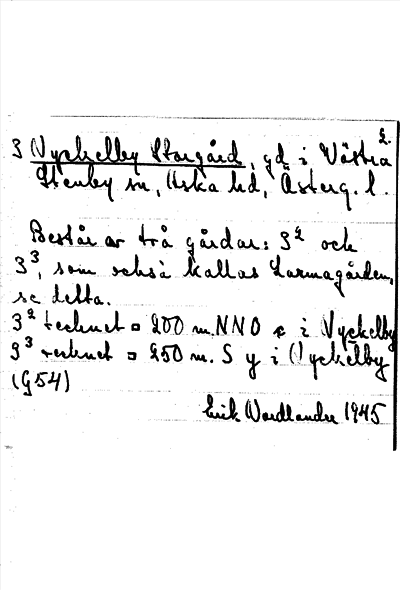 2.
3 Nyckelby Storgård, gd i Västra
Stenby sn, Aska hd, Österg. l.
Består av två gårdar: 3² och
3³, som också kallas Larmagården,
se detta.
3² tecknet ¤ 200 m. NNO c i Nyckelby
3³ tecknet ¤ 250 m. S y i Nyckelby
(G54)
Erik Wordlander 1945